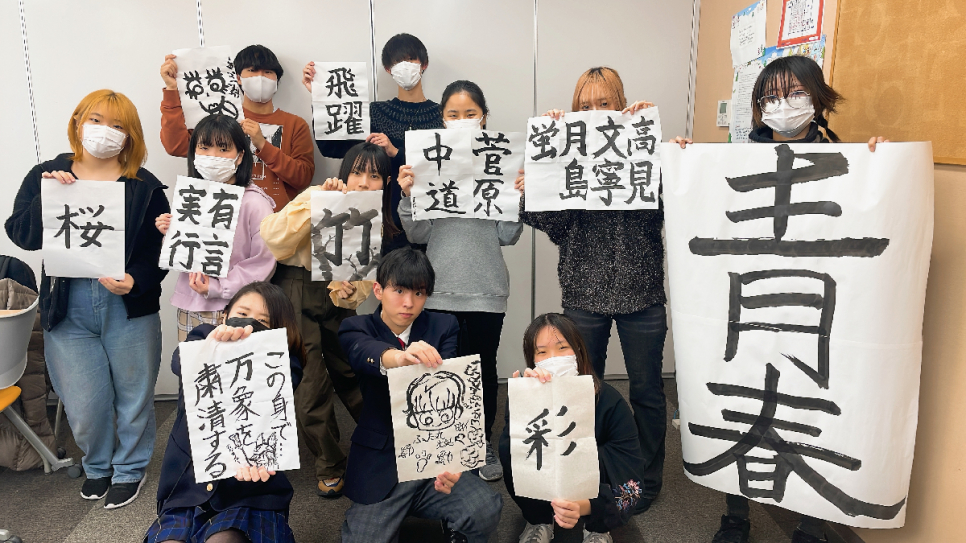 飛躍
桜
有言
実行
竹
菅原
中道
高見
文寧
月島
蛍
青春
この身で
万象を
粛清する
彩